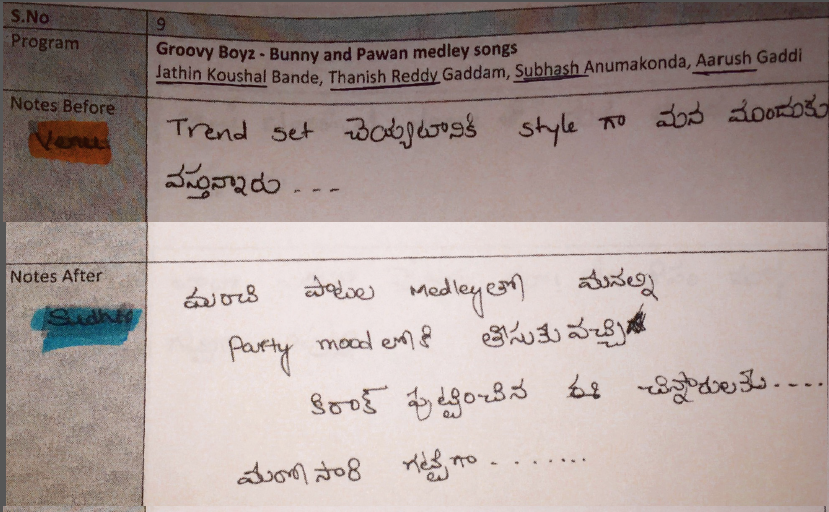 S.No 9
Program Groovy Boyz - Bunny and Pawan medley songs
Jathin Koushal Bande, Thanish Reddy Gaddam, Subhash Anumakonda, Aarush Gaddi
Notes Before Trend set చెయ్యటానికి style గా మన ముందుకు
Venu వస్తున్నారు ---
Notes After మంచి పాటల medley తో మనల్ని
Sudheer party mood లోకి తీసుకు వచ్చి
కిరాక్ పుట్టించిన ఈ చిన్నారులకు ....
మరోసారి గట్టిగా ........